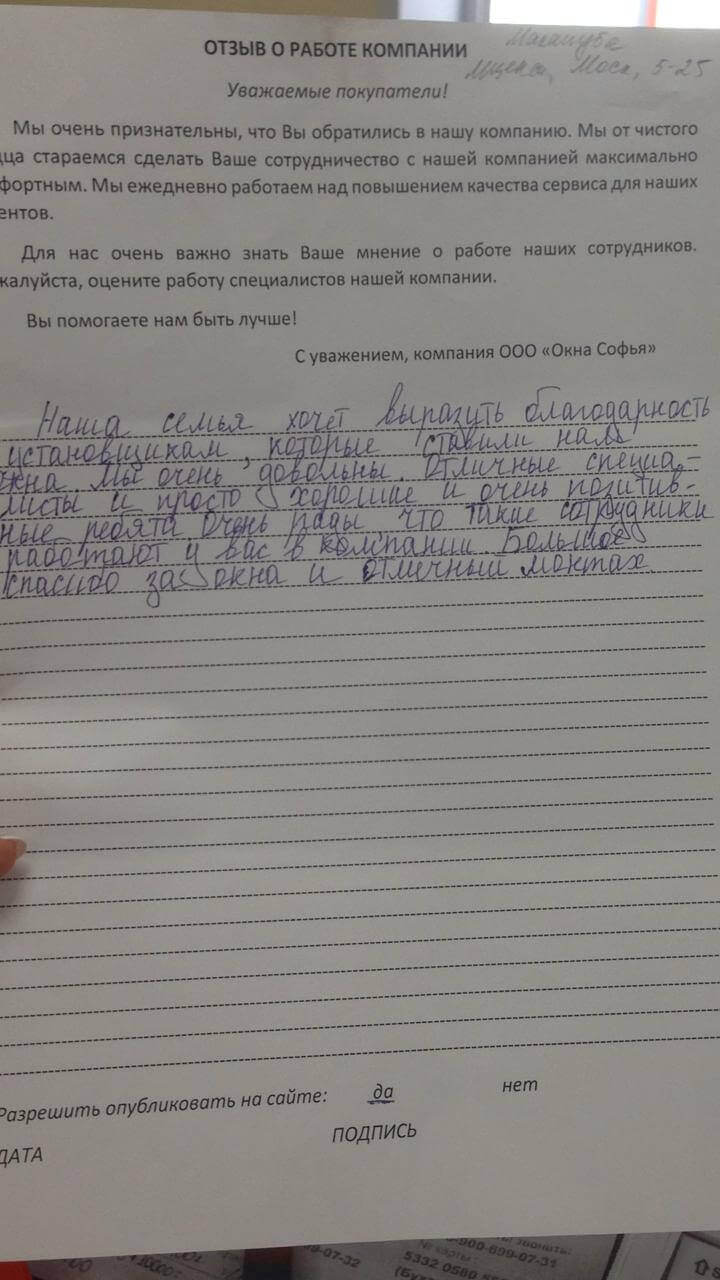 ОТЗЫВ О РАБОТЕ КОМПАНИИ
Мценск, Моск, 5-25
Уважаемые покупатели!
Мы очень признательны, что Вы обратились в нашу компанию. Мы от чистого
дца стараемся сделать Ваше сотрудничество с нашей компанией максимально
фортным. Мы ежедневно работаем над повышением качества сервиса для наших
ентов.
Для нас очень важно знать Ваше мнение о работе наших сотрудников.
жалуйста, оцените работу специалистов нашей компании.
Вы помогаете нам быть лучше!
С уважением, компания ООО «Окна Софья»
Наша семья хочет выразуть благодарность
установщикам, которые ставили нам
окна. Мы очень довольны. Отличные специа-
листы и просто хорошие и очень позитив-
ные ребята. Очень рады, что такие сотрудники
работают у вас в компании. Большое
спасибо за окна и отличный монтаж.
Разрешить опубликовать на сайте: да нет
ПОДПИСЬ
ДАТА
звонить:
№ карты
-900-699-07-31
-99-07-32
5332 0580